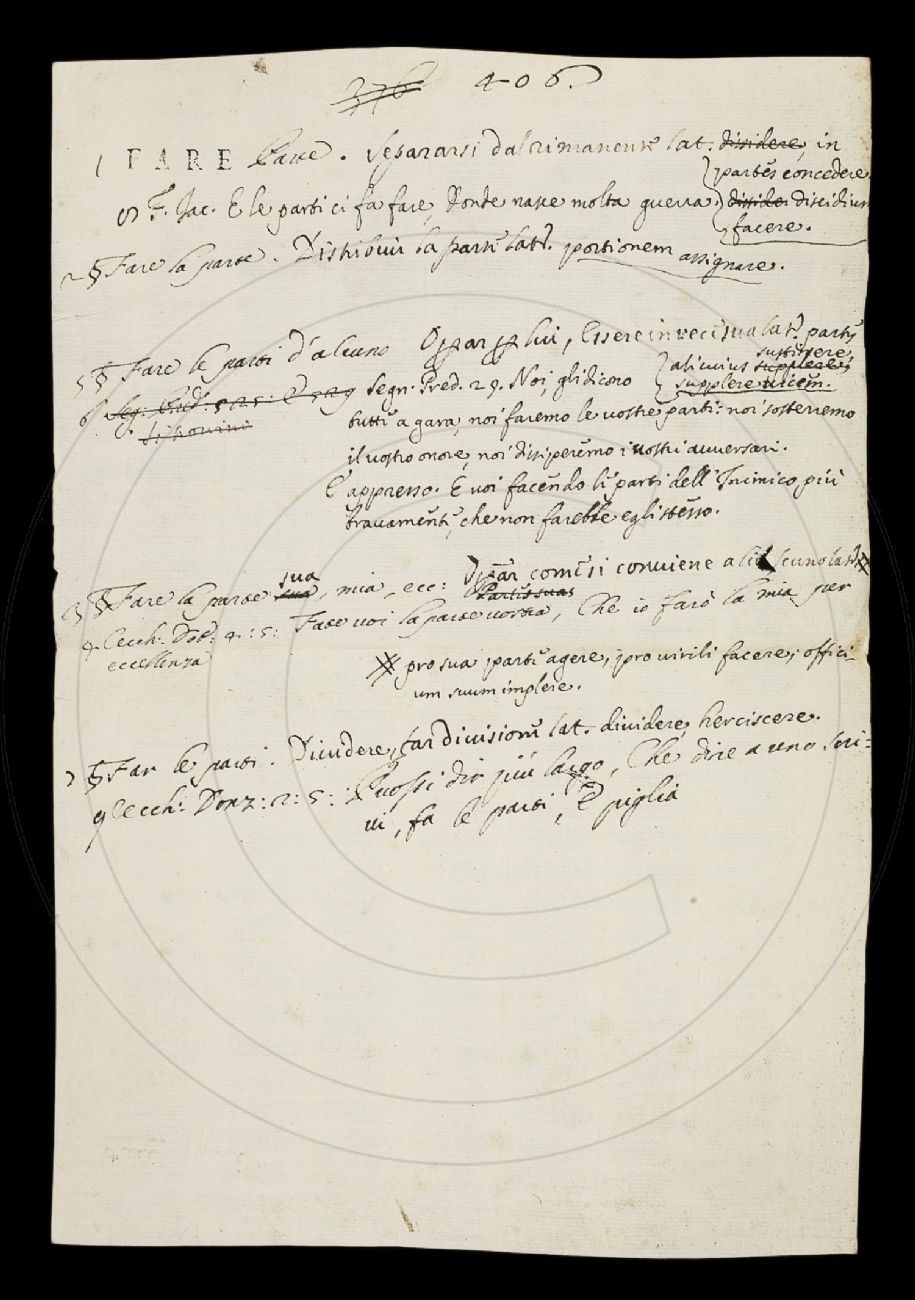 376 406.
1 FARE Parte. Separarsi dal rimanente lat. dissidere, in
partes concedere
F. Jac. E le parti ci fa fare, donde nasce molta guerra. discidium
facere.
2 § Fare la parte. Distribuir la parte lat. portionem assignare.
5 § Fare le parti d'alcuno Oprar per lui, Essere in vece sua lat. partes
sustinere,
alicuius supplere,
6 Segn. Pred. 29. Noi, gli dicono supplere vicem.
tutti a gara, noi faremo le vostre parti: noi sosterremo
il vostro onore, noi dissiperemo i vostri avversari.
E appresso. E voi facendo le parti dell'Inimico più
bravamente, che non farebbe egli stesso.
sua
3 § Fare la parte sua, mia, ecc: Oprar come si conviene a lat.
Partes suas
4 Cecch. Dot: 4: 5: Fate voi la parte vostra, Che io farò la mia per
eccellenza
pro sua parte agere, pro virili facere, offici-
um suum implere.
7 § Far le parti. Dividere, far divisione lat. dividere, herciscere.
9 Cecch: Donz: 2: 5: Puossi dir più largo, Che dire a uno scri-
vi, fa le parti, e piglia